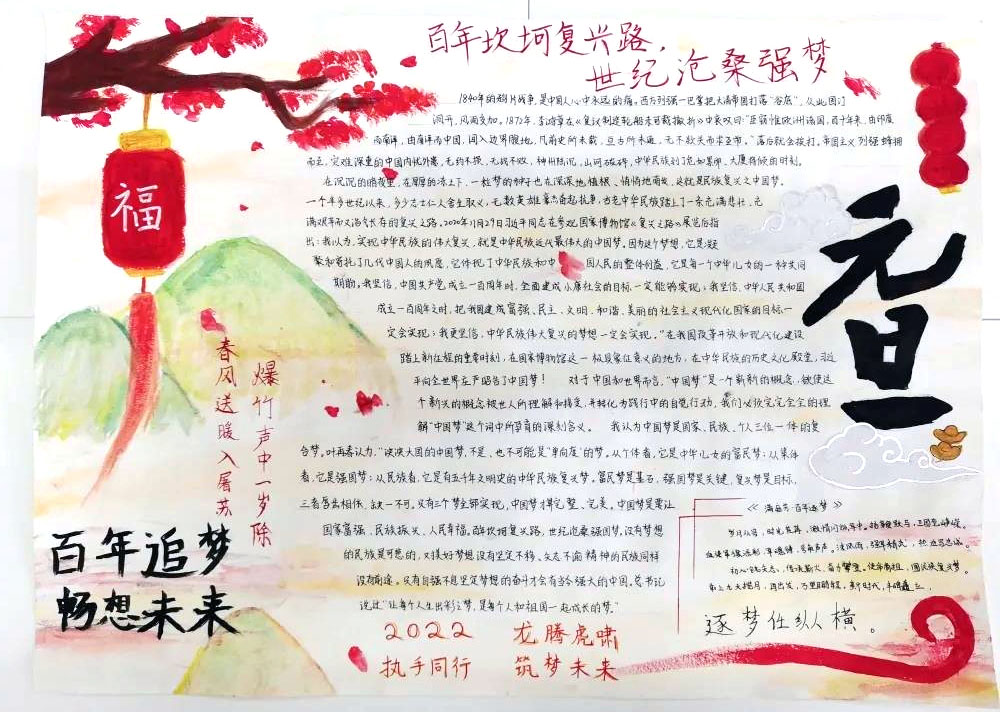 百年坎坷复兴路，
世纪沧桑强梦
1840年的鸦片战争，是中国人心中永远的痛。西方列强一巴掌把大清帝国打落“谷底”，从此国门
洞开，风雨交加。1872年，李鸿章在《复议制造轮船未可裁撤折》中哀叹曰：“臣窃惟欧洲诸国，百十年来，由印度
而南洋，由南洋而中国，闯入边界腹地，凡前史所未载，亘古所未通，无不款关而求互市。”落后就会挨打。帝国主义列强蜂拥
而至，灾难深重的中国内忧外患，无约不损，无战不败，神州陆沉，山河破碎，中华民族到了危如累卵、大厦将倾的时刻。
在沉沉的暗夜里，在厚厚的冻土下，一粒梦的种子也在深深地植根、悄悄地萌发，这就是民族复兴之中国梦。
一个半多世纪以来，多少志士仁人舍生取义，无数英雄豪杰奋起抗争，古老中华民族踏上了一条充满悲壮、充
满艰辛而又源远长存的复兴之路。2020年11月29日习近平同志在参观国家博物馆《复兴之路》展览后指
出：我以为，实现中华民族的伟大复兴，就是中华民族近代最伟大的中国梦。因为这个梦想，它是凝
聚和寄托了几代中国人的夙愿，它体现了中华民族和中 国人民的整体利益，它是每一个中华儿女的一种共同
期盼。我坚信，中国共产党成立一百周年时，全面建成小康社会的目标一定能够实现；我坚信，中华人民共和国
成立一百周年之时，把我国建成富强、民主、文明、和谐、美丽的社会主义现代化国家的目标一
定会实现；我更坚信，中华民族伟大复兴的梦想一定会实现。”在我国改革开放和现代化建设
踏上新征程的重要时刻，在国家博物馆这一极具象征意义的地方，在中华民族的历史文化殿堂，习近
平向全世界庄严昭告了中国梦！ 对于中国和世界而言，“中国梦”是一个崭新的概念，欲使这
个新兴的概念被世人所理解和接受，并转化为践行中的自觉行动，我们必须完完全全的理
解“中国梦”这个词中所孕育的深刻含义。 我认为中国梦是国家、民族、个人三位一体的复
合梦。叶再春认为：“泱泱大国的中国梦，不是，也不可能是“单向度”的梦。从个体看，它是中华儿女的富民梦；从集体
看，它是强国梦；从民族看，它是有五千年文明史的中华民族复兴梦。富民梦是基石，强国梦是关键，复兴梦是目标，
三者层出相依，缺一不可。只有三个梦全部实现，中国梦才完整、完美。中国梦是要让
国家富强，民族振兴，人民幸福。百年坎坷复兴路，世纪沧桑强国梦，没有梦想
的民族是可悲的，对美好梦想没有坚定不移、矢志不渝精神的民族同样
没有前途。只有自强不息坚定梦想的奋斗才会有当今强大的中国。总书记
说过“让每个人生出彩之梦，是每个人和祖国一起成长的梦。”
福
春风送暖入屠苏
爆竹声中一岁除
元旦
百年追梦
畅想未来
2022 龙腾虎啸
执手同行 筑梦未来
逐梦任纵横。